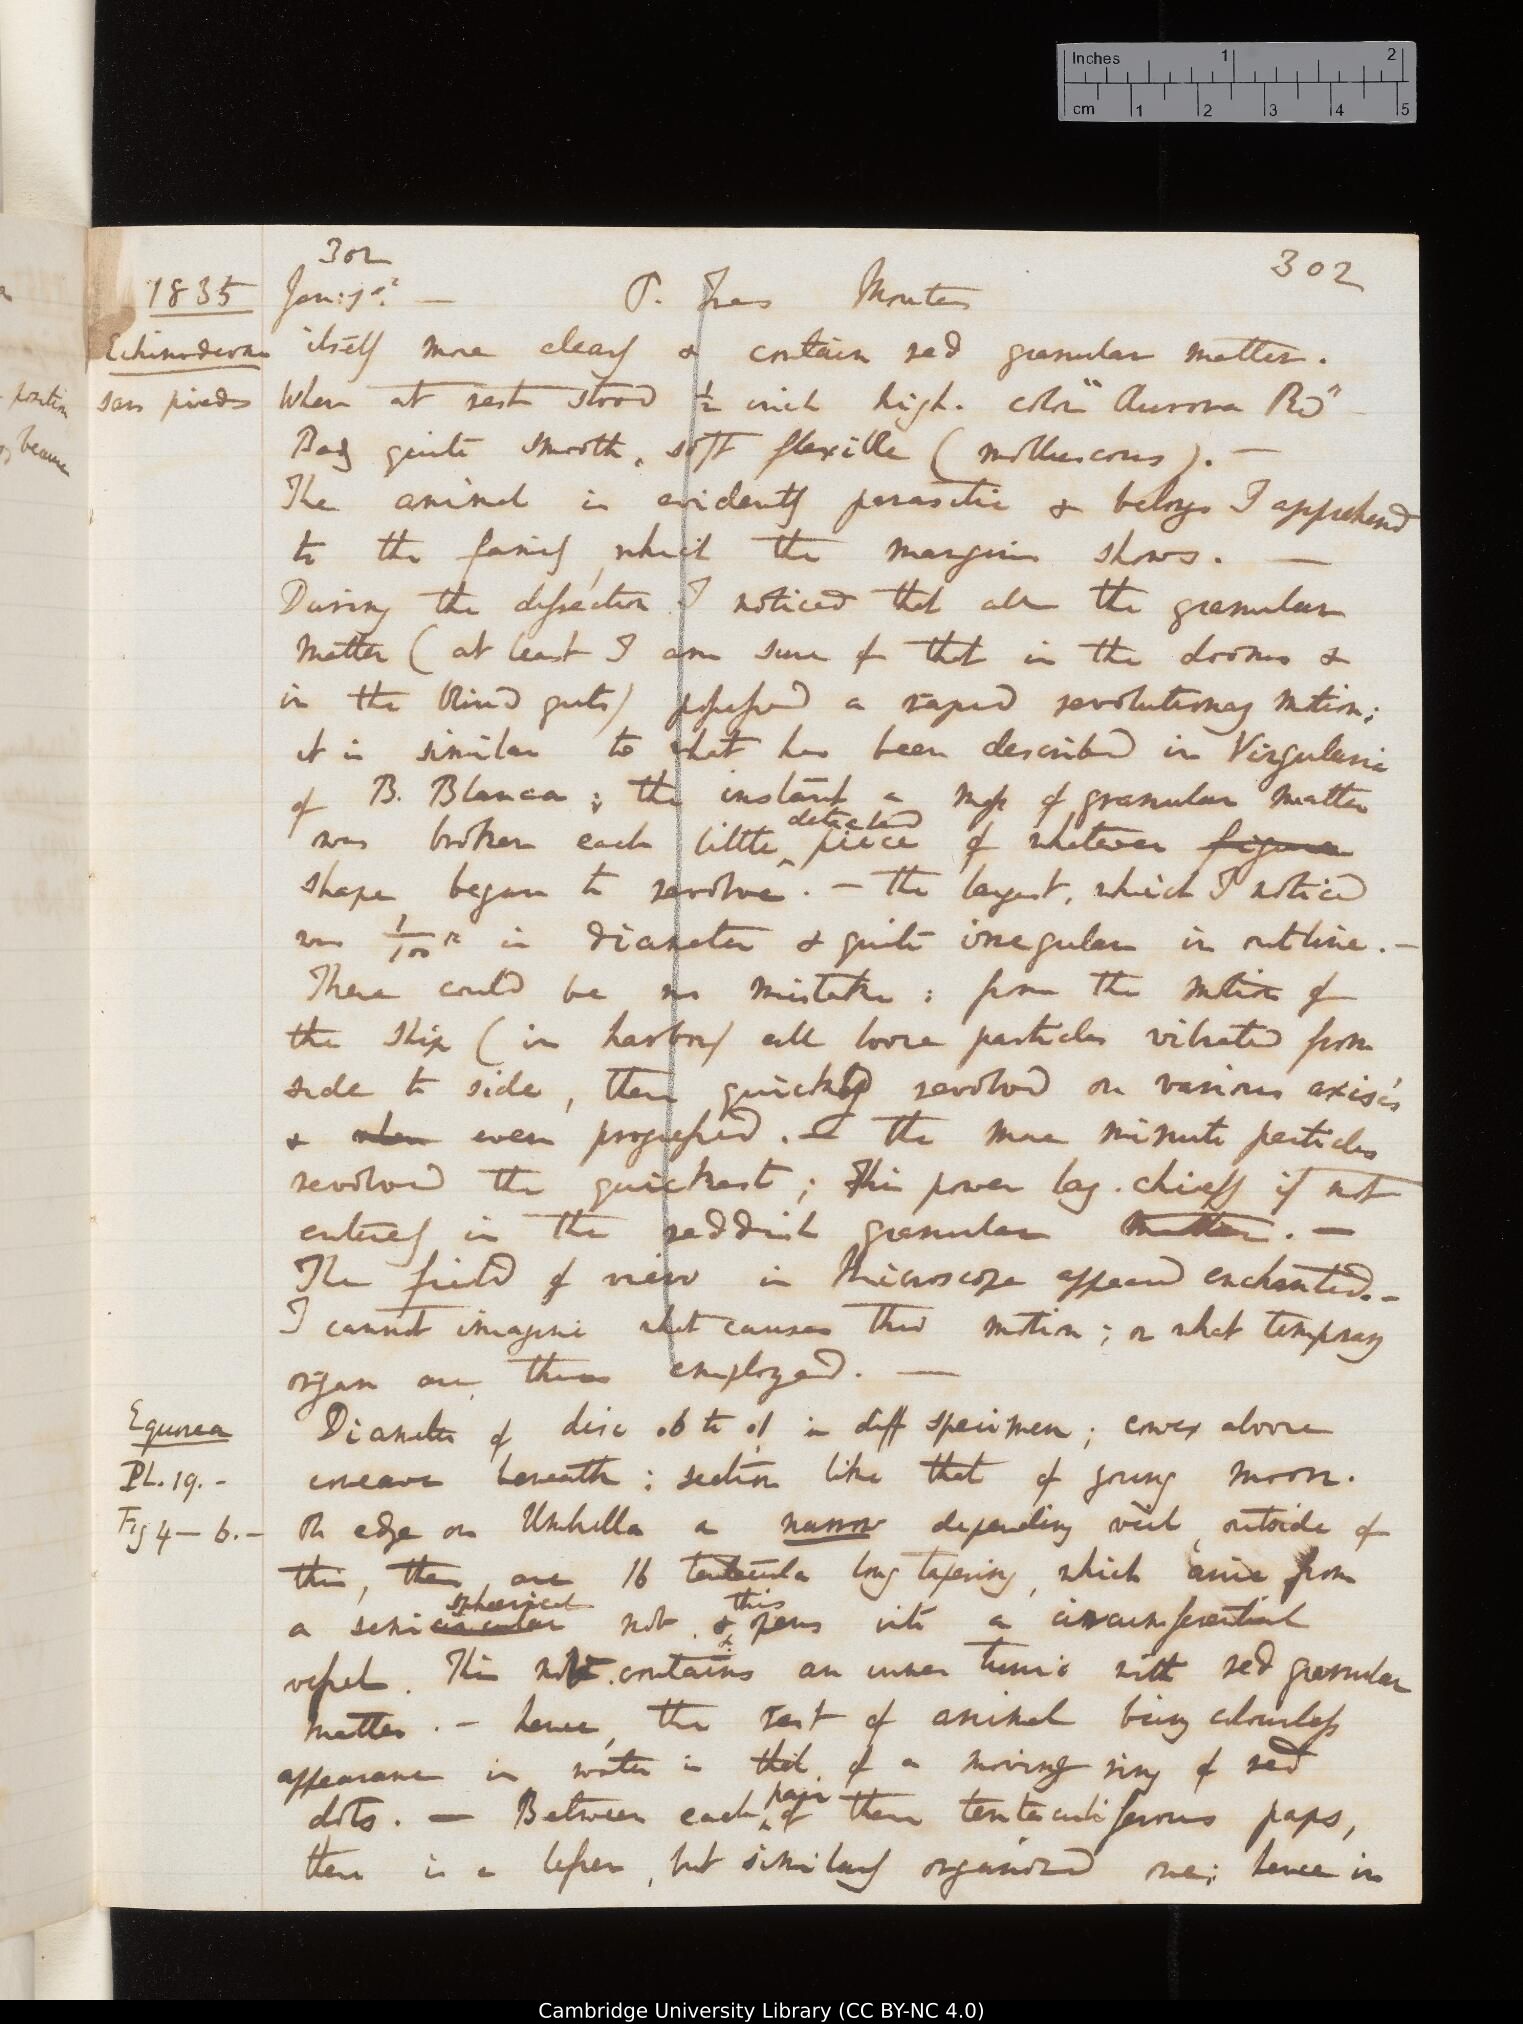 Inches 1 2
cm 1 2 3 4 5
302
302
1835
Jan: 1st. — P. Tres Montes
Echinoderm
sans pieds
itself more clearly & contain red granular matter.
When at rest stood 1/2 inch high. color "Aurora Red"
Body quite smooth, soft flexible (molluscous). —
The animal is evidently parasitic & belongs I apprehend
to the family, which the margin shows. —
During the dissection I noticed that all the granular
matter (at least I am sure of that in the &
in the blind guts) possessed a rapid revolutionary motion;
it is similar to what has been described in Virgularia
of B. Blanca; the instant a mass of granular matter
was broken each little detached piece of whatever figure
shape began to revolve. — the largest, which I noticed
was 1/100" in diameter & quite irregular in outline. —
There could be no mistake: from the motion of
the ship (in harbor) all loose particles vibrated from
side to side, then quickly revolved on various axis's
& when even progressed. — the more minute particles
revolved the quickest; this power lay. chiefly if not
entirely in the reddish granular matter. —
The field of view in Microscope appeared enchanted. —
I cannot imagine what causes this motion; or what temporary
organ are thus employed. —
Equorea
PL. 19. –
Fig 4 – 6. –
Diameter of disc .06 to .1 in diff specimen; convex above
concave beneath: section like that of young moon.
On edge on Umbrella a narrow depending veil, outside of
this, there are 16 tentacula long tapering, which arise from
a semicircular spherical & this opens into a circumferential
vessel. This contains an inner tunic with red granular
matter. – hence, the rest of animal being colourless
appearance in water is that of a moving ring of red
dots. — Between each pair of these tentaculiferous paps,
there is a lesser, but similarly organized one; hence in
position
because
Cambridge University Library (CC BY-NC 4.0)